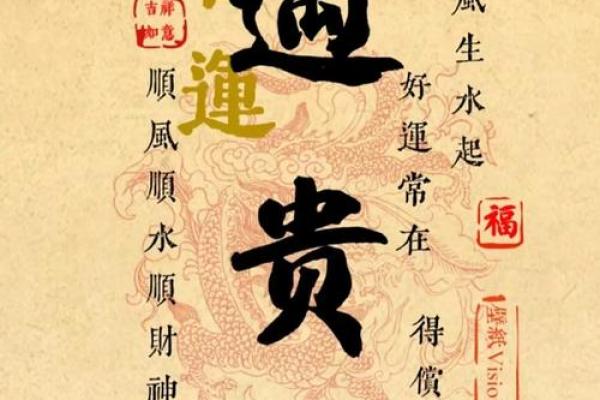 風生水起
好運常在
得償
遇贵
運
順風順水順財神
吉祥
如意
福
壁紙Visio